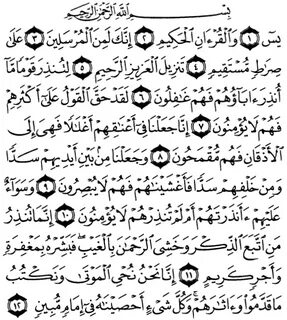 بِسْمِ اللَّهِ الرَّحْمَٰنِ الرَّحِيمِ
يسٓ ١ وَالْقُرْءَانِ الْحَكِيمِ ٢ إِنَّكَ لَمِنَ الْمُرْسَلِينَ ٣ عَلَىٰ
صِرَٰطٍ مُّسْتَقِيمٍ ٤ تَنزِيلَ الْعَزِيزِ الرَّحِيمِ ٥ لِتُنذِرَ قَوْمًا مَّا
أُنذِرَ ءَابَآؤُهُمْ فَهُمْ غَٰفِلُونَ ٦ لَقَدْ حَقَّ الْقَوْلُ عَلَىٰٓ أَكْثَرِهِمْ
فَهُمْ لَا يُؤْمِنُونَ ٧ إِنَّا جَعَلْنَا فِىٓ أَعْنَٰقِهِمْ أَغْلَٰلًا فَهِىَ إِلَى
الْأَذْقَانِ فَهُم مُّقْمَحُونَ ٨ وَجَعَلْنَا مِنۢ بَيْنِ أَيْدِيهِمْ سَدًّا
وَمِنْ خَلْفِهِمْ سَدًّا فَأَغْشَيْنَٰهُمْ فَهُمْ لَا يُبْصِرُونَ ٩ وَسَوَآءٌ
عَلَيْهِمْ ءَأَنذَرْتَهُمْ أَمْ لَمْ تُنذِرْهُمْ لَا يُؤْمِنُونَ ١٠ إِنَّمَا تُنذِرُ
مَنِ اتَّبَعَ الذِّكْرَ وَخَشِىَ الرَّحْمَٰنَ بِالْغَيْبِ فَبَشِّرْهُ بِمَغْفِرَةٍ
وَأَجْرٍ كَرِيمٍ ١١ إِنَّا نَحْنُ نُحْىِ الْمَوْتَىٰ وَنَكْتُبُ
مَا قَدَّمُوا۟ وَءَاثَٰرَهُمْ وَكُلَّ شَىْءٍ أَحْصَيْنَٰهُ فِىٓ إِمَامٍ مُّبِينٍ ١٢